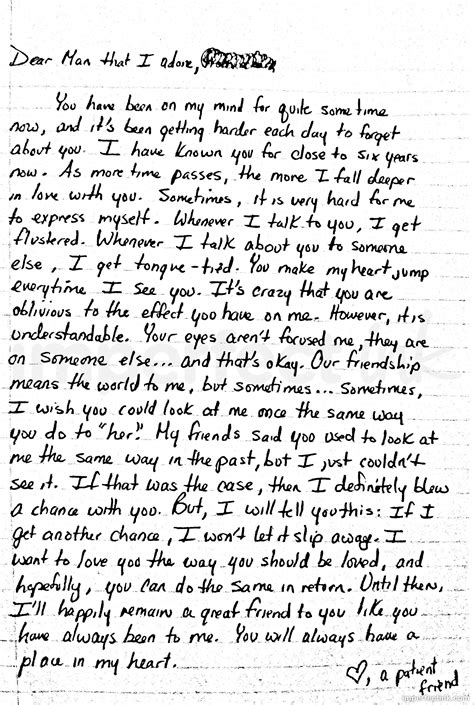 Dear Man that I adore,
You have been on my mind for quite some time
now, and it's been getting harder each day to forget
about you. I have known you for close to six years
now. As more time passes, the more I fall deeper
in love with you. Sometimes, it is very hard for me
to express myself. Whenever I talk to you, I get
flustered. Whenever I talk about you to someone
else, I get tongue-tied. You make my heart jump
everytime I see you. It's crazy that you are
oblivious to the effect you have on me. However, it is
understandable. Your eyes aren't focused me, they are
on someone else... and that's okay. Our friendship
means the world to me, but sometimes... Sometimes,
I wish you could look at me once the same way
you do to "her." My friends said you used to look at
me the same way in the past, but I just couldn't
see it. If that was the case, then I definitely blew
a chance with you. But, I will tell you this: If I
get another chance, I won't let it slip away. I
want to love you the way you should be loved, and
hopefully, you can do the same in return. Until then,
I'll happily remain a great friend to you like you
have always been to me. You will always have a
place in my heart.
♡, a patient
friend